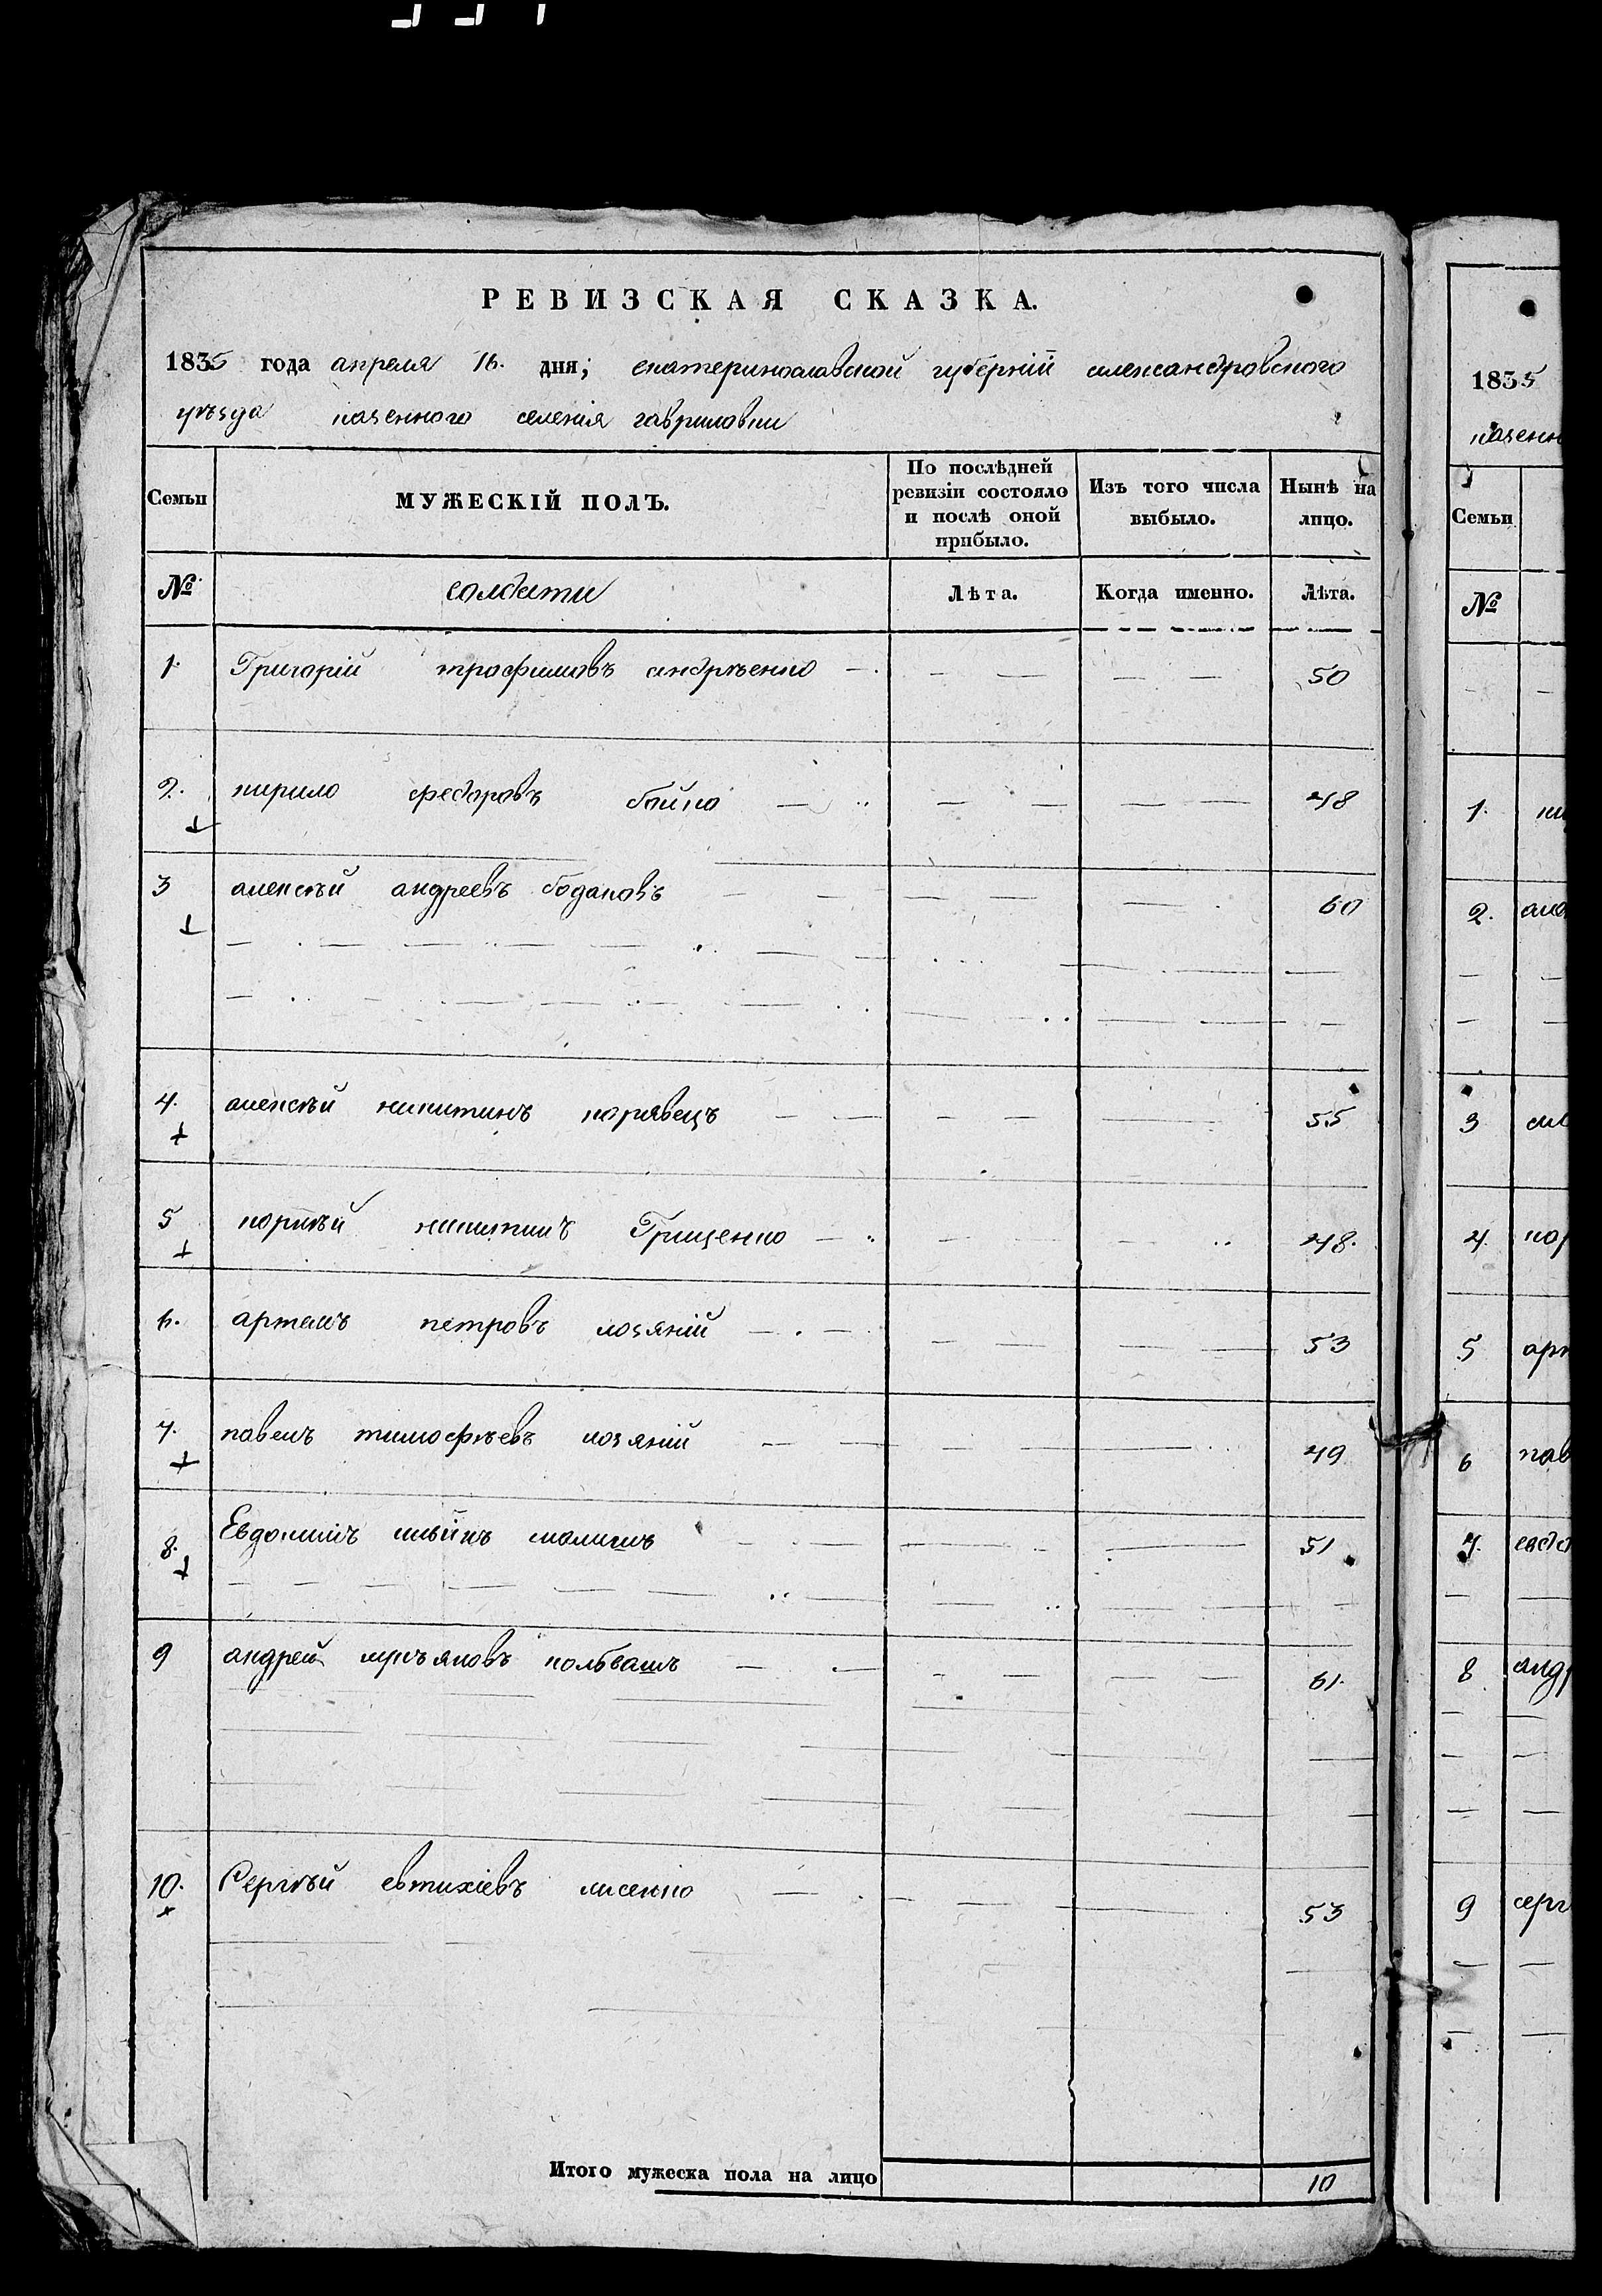 РЕВИЗСКАЯ СКАЗКА.
1835 года апреля 16. дня; екатеринославской губернїй александровского
уѣзда казенного селенія гавриловки
Семьи МУЖЕСКІЙ ПОЛЪ. По послѣдней ревизіи состояло и послѣ оной прибыло. Изъ того числа выбыло. Нынѣ на лицо.
№ солдати Лѣта. Когда именно. Лѣта.
1. Григорій трофимовъ андрѣенко 50
2. кирило федоровъ бойко 48
3 алексѣй андреевъ богдановъ 60
4. алексѣй никитинъ корявецъ 55
5 корнѣй никитинъ Грищенко 48.
6. артемъ петровъ лозяній 53
7. павелъ тимофѣевъ лозяній 49
8. Евдокимъ ильинъ малишъ 51
9 андрей лукъяновъ колбвашъ 61.
10. Сергѣй евтихіевъ лисенко 53
Итого мужеска пола на лицо 10
1835
казенн
Семьи
№
1.
2.
3
4. кор
5 арт
6 пав
7. евдо
8 андр
9 серг